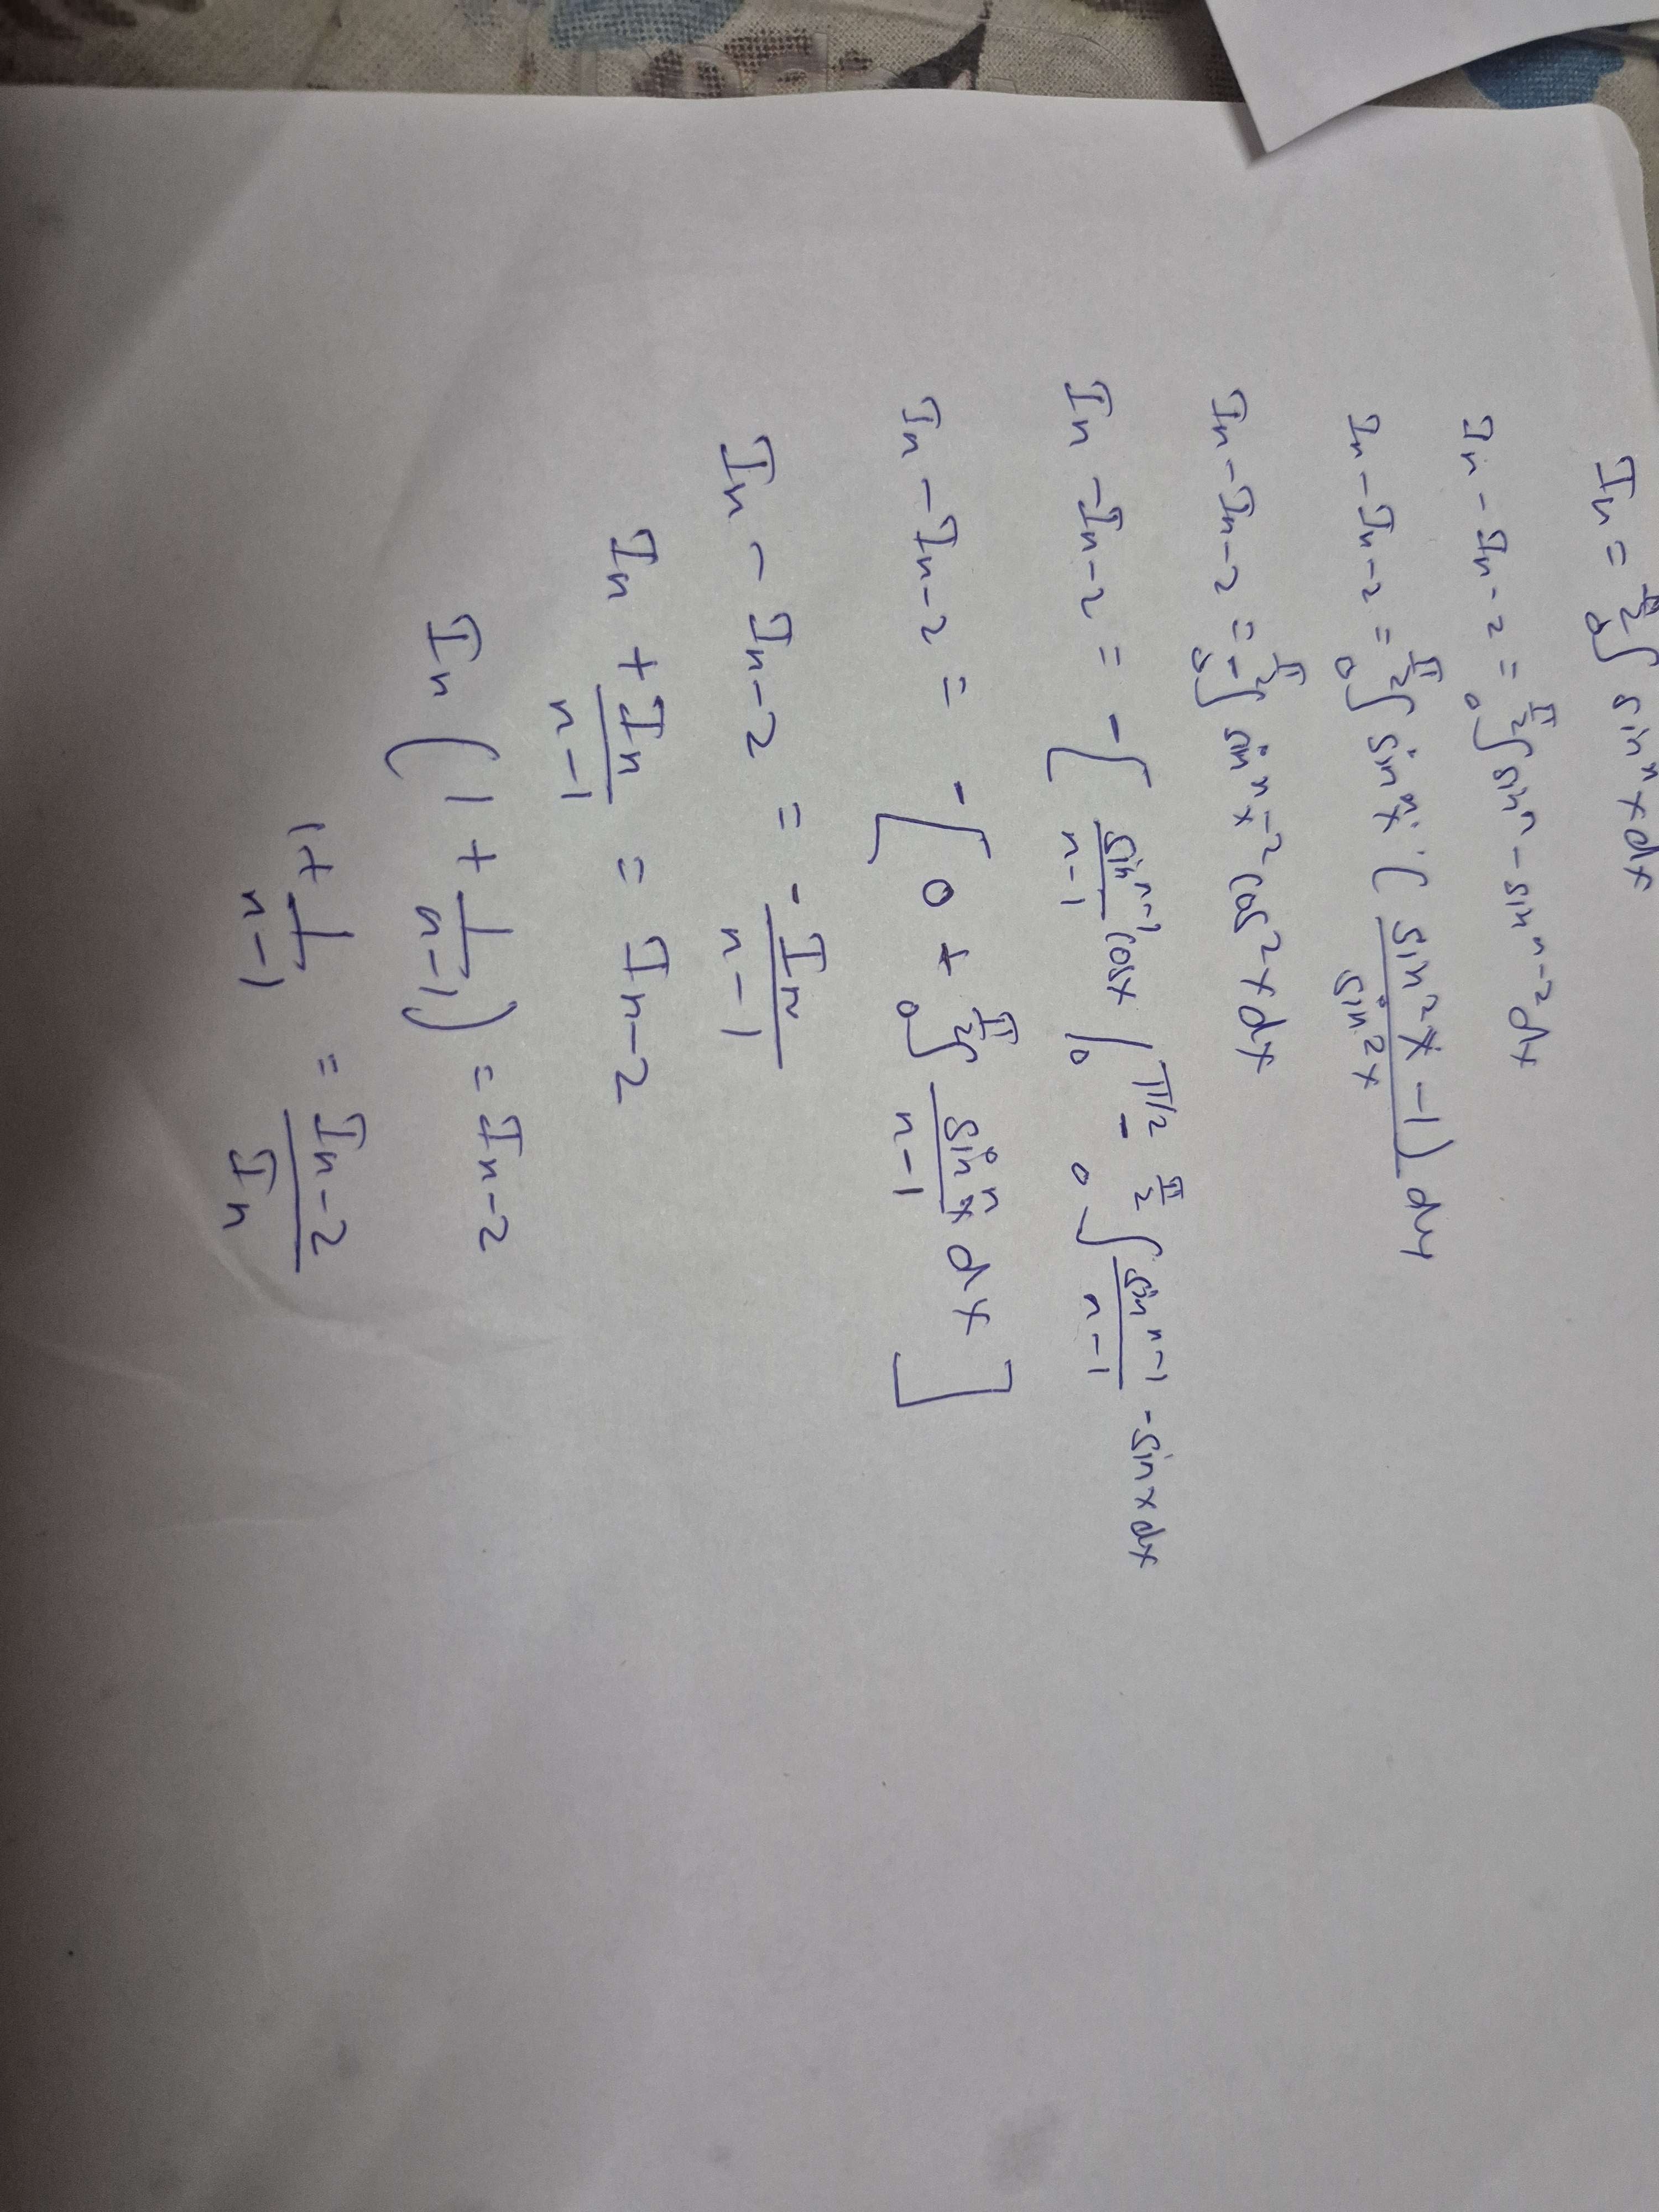 Iₙ = ∫₀^(π/2) sinⁿx dx
Iₙ - Iₙ₋₂ = ∫₀^(π/2) sinⁿ - sinⁿ⁻² dx
Iₙ - Iₙ₋₂ = ∫₀^(π/2) sinⁿx · ( (sin²x - 1) / sin²x ) dx
Iₙ - Iₙ₋₂ = -∫₀^(π/2) sinⁿ⁻²x cos²x dx
Iₙ - Iₙ₋₂ = -[ sinⁿ⁻¹/(n-1) cosx |₀^(π/2) - ∫₀^(π/2) sinⁿ⁻¹/(n-1) · -sinx dx
Iₙ - Iₙ₋₂ = -[ 0 + ∫₀^(π/2) sinⁿx/(n-1) dx ]
Iₙ - Iₙ₋₂ = - Iₙ/(n-1)
Iₙ + Iₙ/(n-1) = Iₙ₋₂
Iₙ ( 1 + 1/(n-1) ) = Iₙ₋₂
1 + 1/(n-1) = Iₙ₋₂/Iₙ